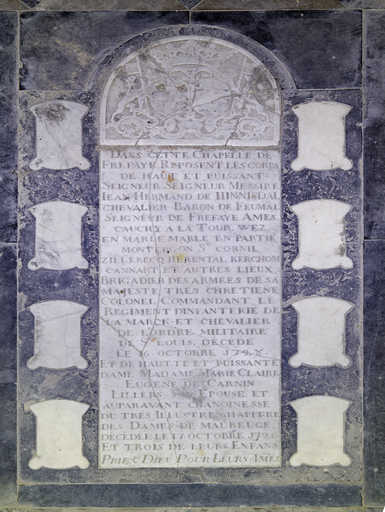 DANS CETTE CHAPELLE DE
FREFAYE REPOSENT LES CORPS
DE HAUT ET PUISSANT
SEIGNEUR SEIGNEUR MESSIRE
IEAN HERMAND DE HINNISDAL
CHEVALIER BARON DE FUMAL
SEIGNEUR DE FREFAYE AMES
CAUCHY A LA TOUR WEZ
EN MARLE MARLE EN PARTIE
ST CORNIL
ZILLERECQ HERENTAL KERCHOM
CANNART ET AUTRES LIEUX
BRIGADIER DES ARMEES DE SA
MAJESTE TRES CHRETIENE
COLONEL COMMANDANT LE
REGIMENT D'INFANTERIE DE
LA MARCK ET CHEVALIER
DE L'ORDRE MILITAIRE
DE ST LOUIS, DECEDE
LE 16 OCTOBRE
ET DE HAUTTE ET PUISSANTE
DAME MADAME MARIE CLAIRE
EUGENE DE CARNIN
LILLERS SON EPOUSE ET
AUPARAVANT CHANOINESSE
DU TRES ILLUSTRE CHAPITRE
DES DAMES DE MAUBEUGE
DECEDEE LE 17 OCTOBRE
ET TROIS DE LEURS ENFANS
PRIEZ DIEU POUR LEURS AMES